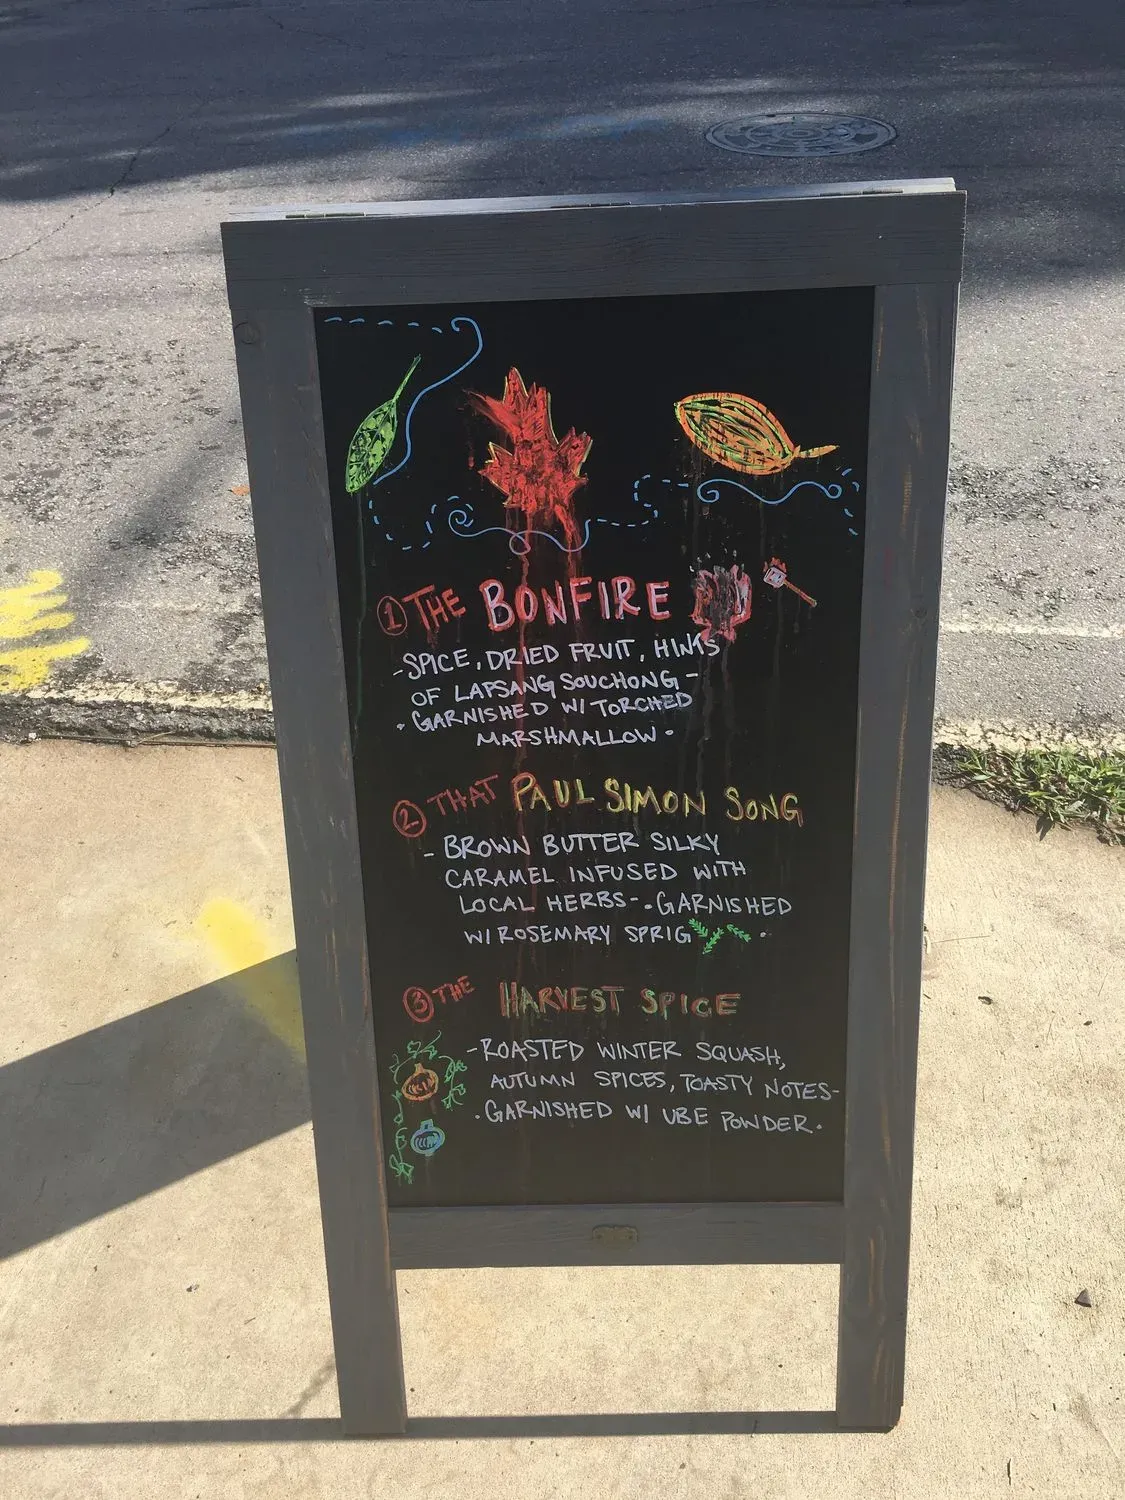 ① THE BONFIRE
-SPICE, DRIED FRUIT, HINTS
OF LAPSANG SOUCHONG -
• GARNISHED W/ TORCHED
MARSHMALLOW •
② THAT PAUL SIMON SONG
- BROWN BUTTER SILKY
CARAMEL INFUSED WITH
LOCAL HERBS- • GARNISHED
W/ ROSEMARY SPRIG •
③ THE HARVEST SPICE
-ROASTED WINTER SQUASH,
AUTUMN SPICES, TOASTY NOTES-
• GARNISHED W/ UBE POWDER •